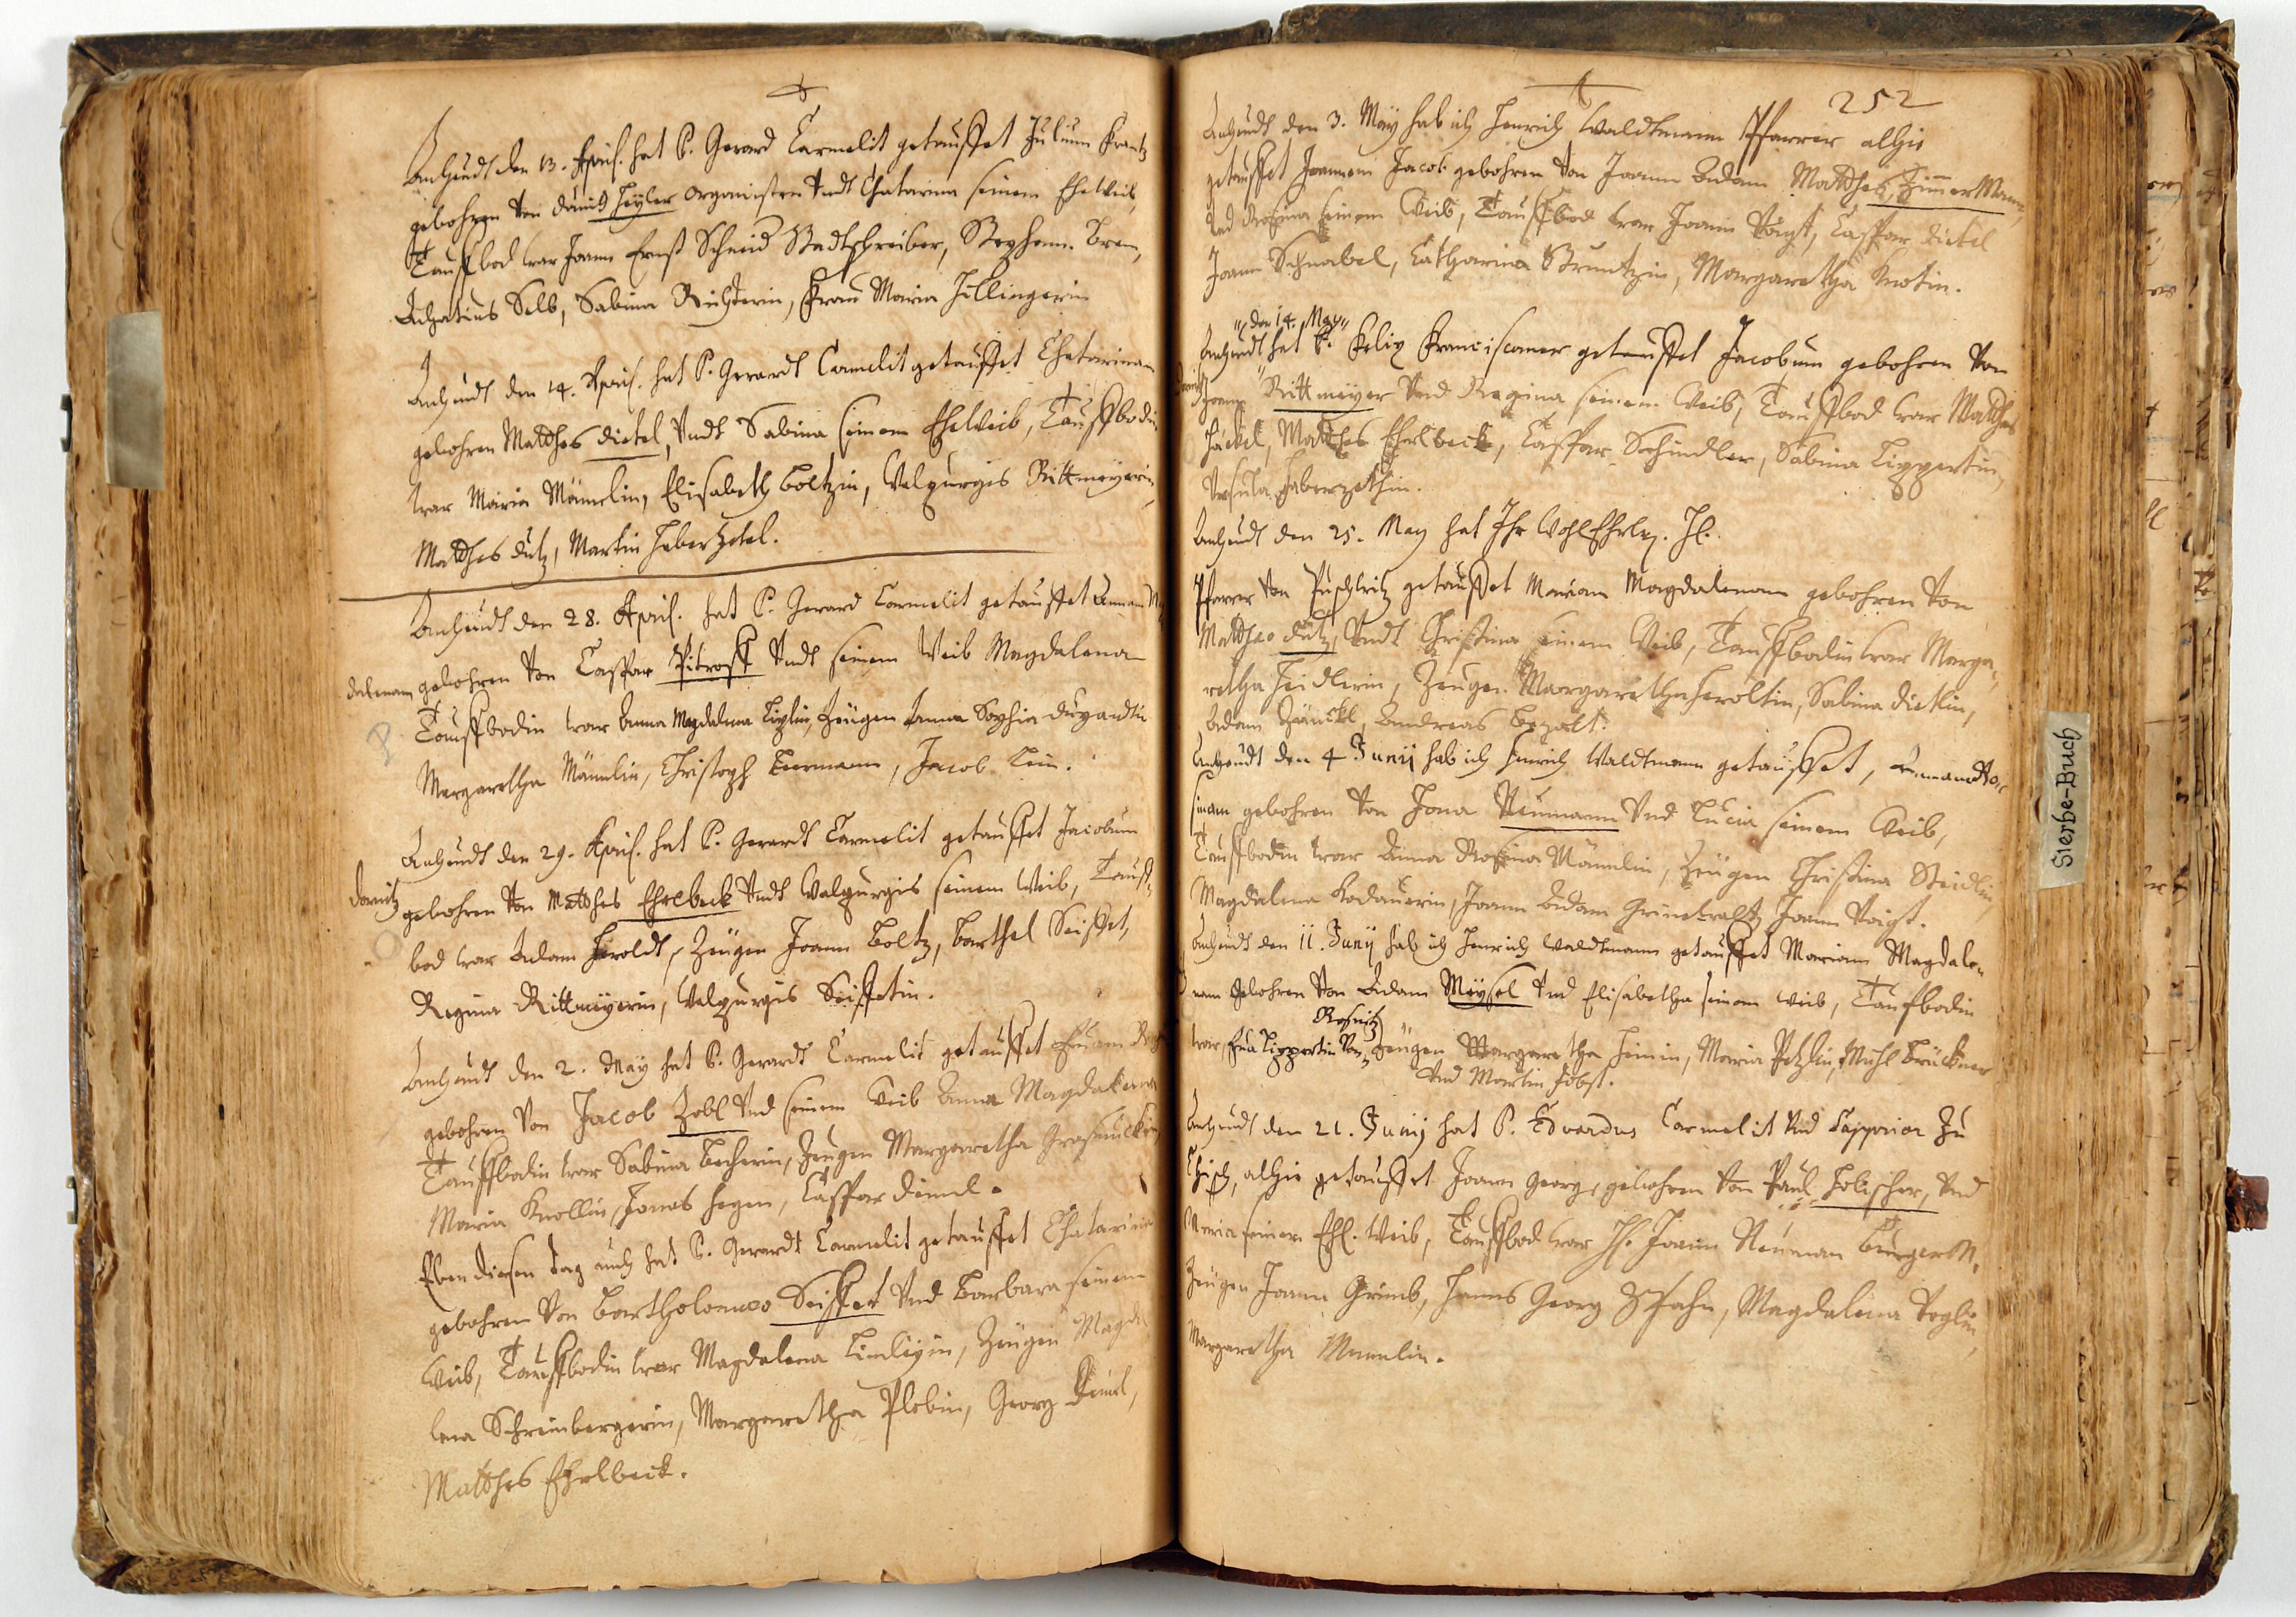 Anheudt den 13. April. hat P. Gerard Carmelit getauffet Julium Frantz
gebohren von David Heyler organisten undt Chatarina seinem Eheweib,
Tauffbod war Joann Ernst Schmid Stadtschreiber, Stephan
Achatius Selb, Sabina Richterin, Frau Maria Hillingerin
Anheudt den 14. April. hat P. Gerardt Carmelit getauffet Chatarinam
gebohren Matthes Dietel, undt Sabina seinem Eheweib, Tauffbodin
war Maria Männlin, Elisabeth Boltzin, Walpurgis Rittmeyerin,
Matthes Dutz, Martin Haberzetel.
Anheudt den 28. April. hat P. Gerard Carmelit getauffet Annam Mag
dalenam gebohren von Casspar Pitroff undt seinem Weib Magdalena
Tauffbodin war Anna Magdalena Liplin, Zeugen Anna Sophia
Margaretha Männlin, Christoph, Jacob
Anheudt den 29. April. hat P. Gerardt Carmelit getauffet Jacobum
Dornitz gebohren von Matthes Ehrlbeck undt Walpurgis seinem Weib, Tauff-
bod war Adam Heroldt, Zeugen Joann Boltz, Barthel Seiffet,
Regina Rittmeyerin, Walpurgis Seiffetin.
Anheudt den 2. May hat P. Gerardt Carmelit getauffet Evam
gebohren von Jacob Zobl und seinem Weib Anna Magdalena
Tauffbodin war Sabina Becherin, Zeugen Margaretha Grasmuckin
Maria Knollin, Jonas Hegen, Casspar Diml.
Eben diesen Tag auch hat P. Gerardt Carmelit getauffet Chatarina
gebohren von Bartholomeo Seiffet und Barbara seinem
Weib, Tauffbodin war Magdalena, Zeugen Magda
lena Schreinbergerin, Margaretha Plobin, Georg Diml,
Matthes Ehrlbeck.
252
Anheudt den 3. May hab ich Henrich Waldtmann Pfarrer alhie
getauffet Joannem Jacob gebohren von Joann Adam Matthes ZimmerMann,
und Rosina seinem Weib, Tauffbod war Joann Voigt, Casspar Dietel
Joann Schnabel, Catharina Struntzin, Margaretha Knotin.
den 14. May
Anheudt hat P. Felix Franciscaner getauffet Jacobum gebohren von
Joann Rittmeyer und Regina seinem Weib, Tauffbod war Matthes
Häckel, Matthes Ehrlbeck, Casspar Schindler, Sabina Lippertin,
Ursula Haberzethin.
Anheudt den 25. May hat Ihr WohlEhrw. H.
Pfarrer von Puschwitz getauffet Mariam Magdalenam gebohren von
Mattheo Dutz undt Christina seinem Weib, Tauffbodin war Marga-
retha Heidlerin, Zeugen Margaretha Heroltin, Sabina Dietlin,
Adam Zänckl, Andreas Bezolt.
Anheudt den 4 Junij hab ich Henrich Waldtmann getauffet, Annam Ro-
sinam gebohren von Jona Neumann und Lucia seinem Weib,
Tauffbodin war Anna Rosina Männlin, Zeugen Christina Steidlin,
Magdalena Kodauerin, Joann Adam Grünewaldt, Joann Voigt.
Anheudt den 11. Junij hab ich Henrich Waldtmann getauffet Mariam Magdale-
nam gebohren von Adam Meysel und Elisabetha seinem Weib, Tauffbodin
Rosnitz
war, Eva Lippertin von, Zeugen Margaretha Heinin, Maria Petzlin, Michl Brückner
und Martin Jobst.
Anheudt den 21. Junij hat P. Edvardus Carmelit und Supprior zu
Chisch, alhie getauffet Joann Georg, gebohren von Paul Holischer, und
Maria seinem Ehl. Weib, Tauffbod war H. Joann Neuman BurgerM.
Zeugen Joann Grimb, Hanns Georg Spahn, Magdalena Voglin,
Margaretha Mannlin.
Sterbe-Buch